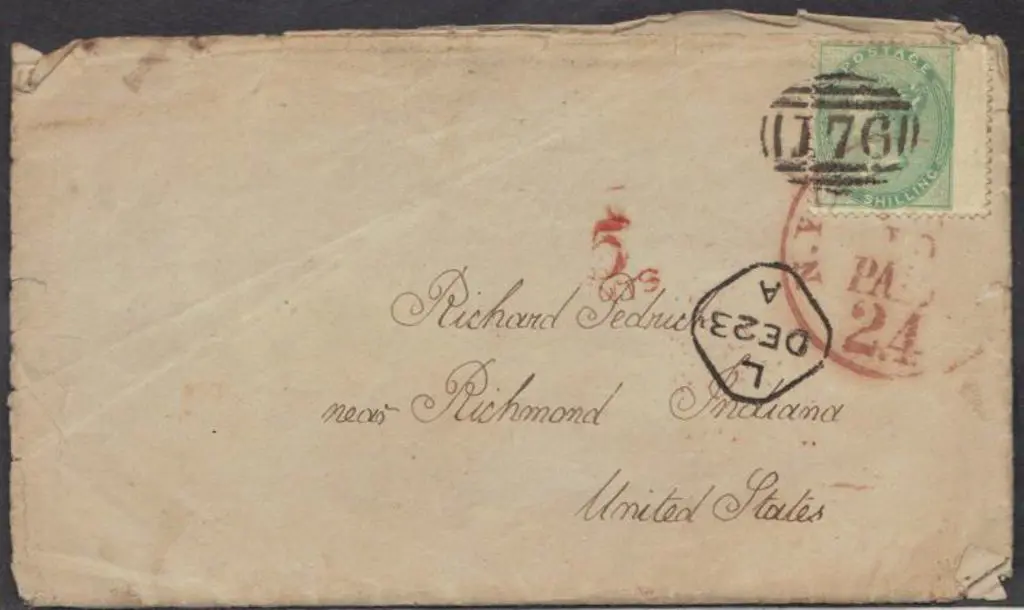 POSTAGE
SHILLING
176
N.Y.
PA
24
5
CTS
Richard Pedrick
near Richmond Indiana
United States
L
DE23
A